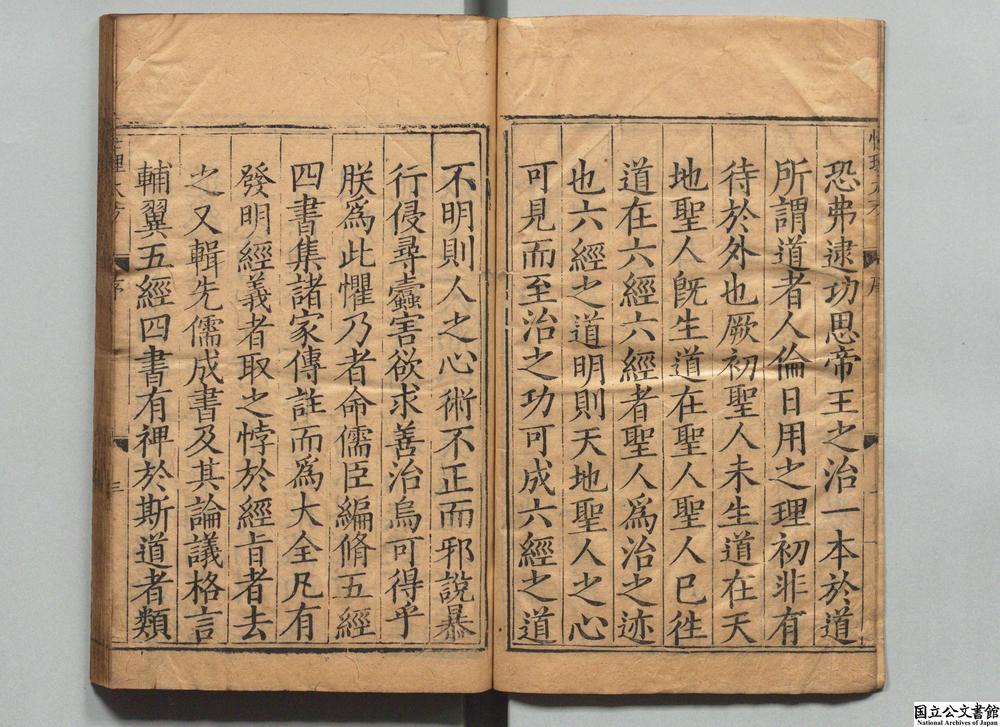 恐弗逮功思帝王之治一本於道
所謂道者人倫日用之理初非有
待於外也厥初聖人未生道在天
地聖人旣生道在聖人聖人已徃
道在六經六經者聖人爲治之迹
也六經之道明則天地聖人之心
可見而至治之功可成六經之道
不明則人之心術不正而邪說暴
行侵尋蠹害欲求善治烏可得乎
朕爲此懼乃者命儒臣編脩五經
四書集諸家傳註而爲大全凡有
發明經義者取之悖於經旨者去
之又輯先儒成書及其論議格言
輔翼五經四書有裨於斯道者類
序
三
国立公文書館
National Archives of Japan